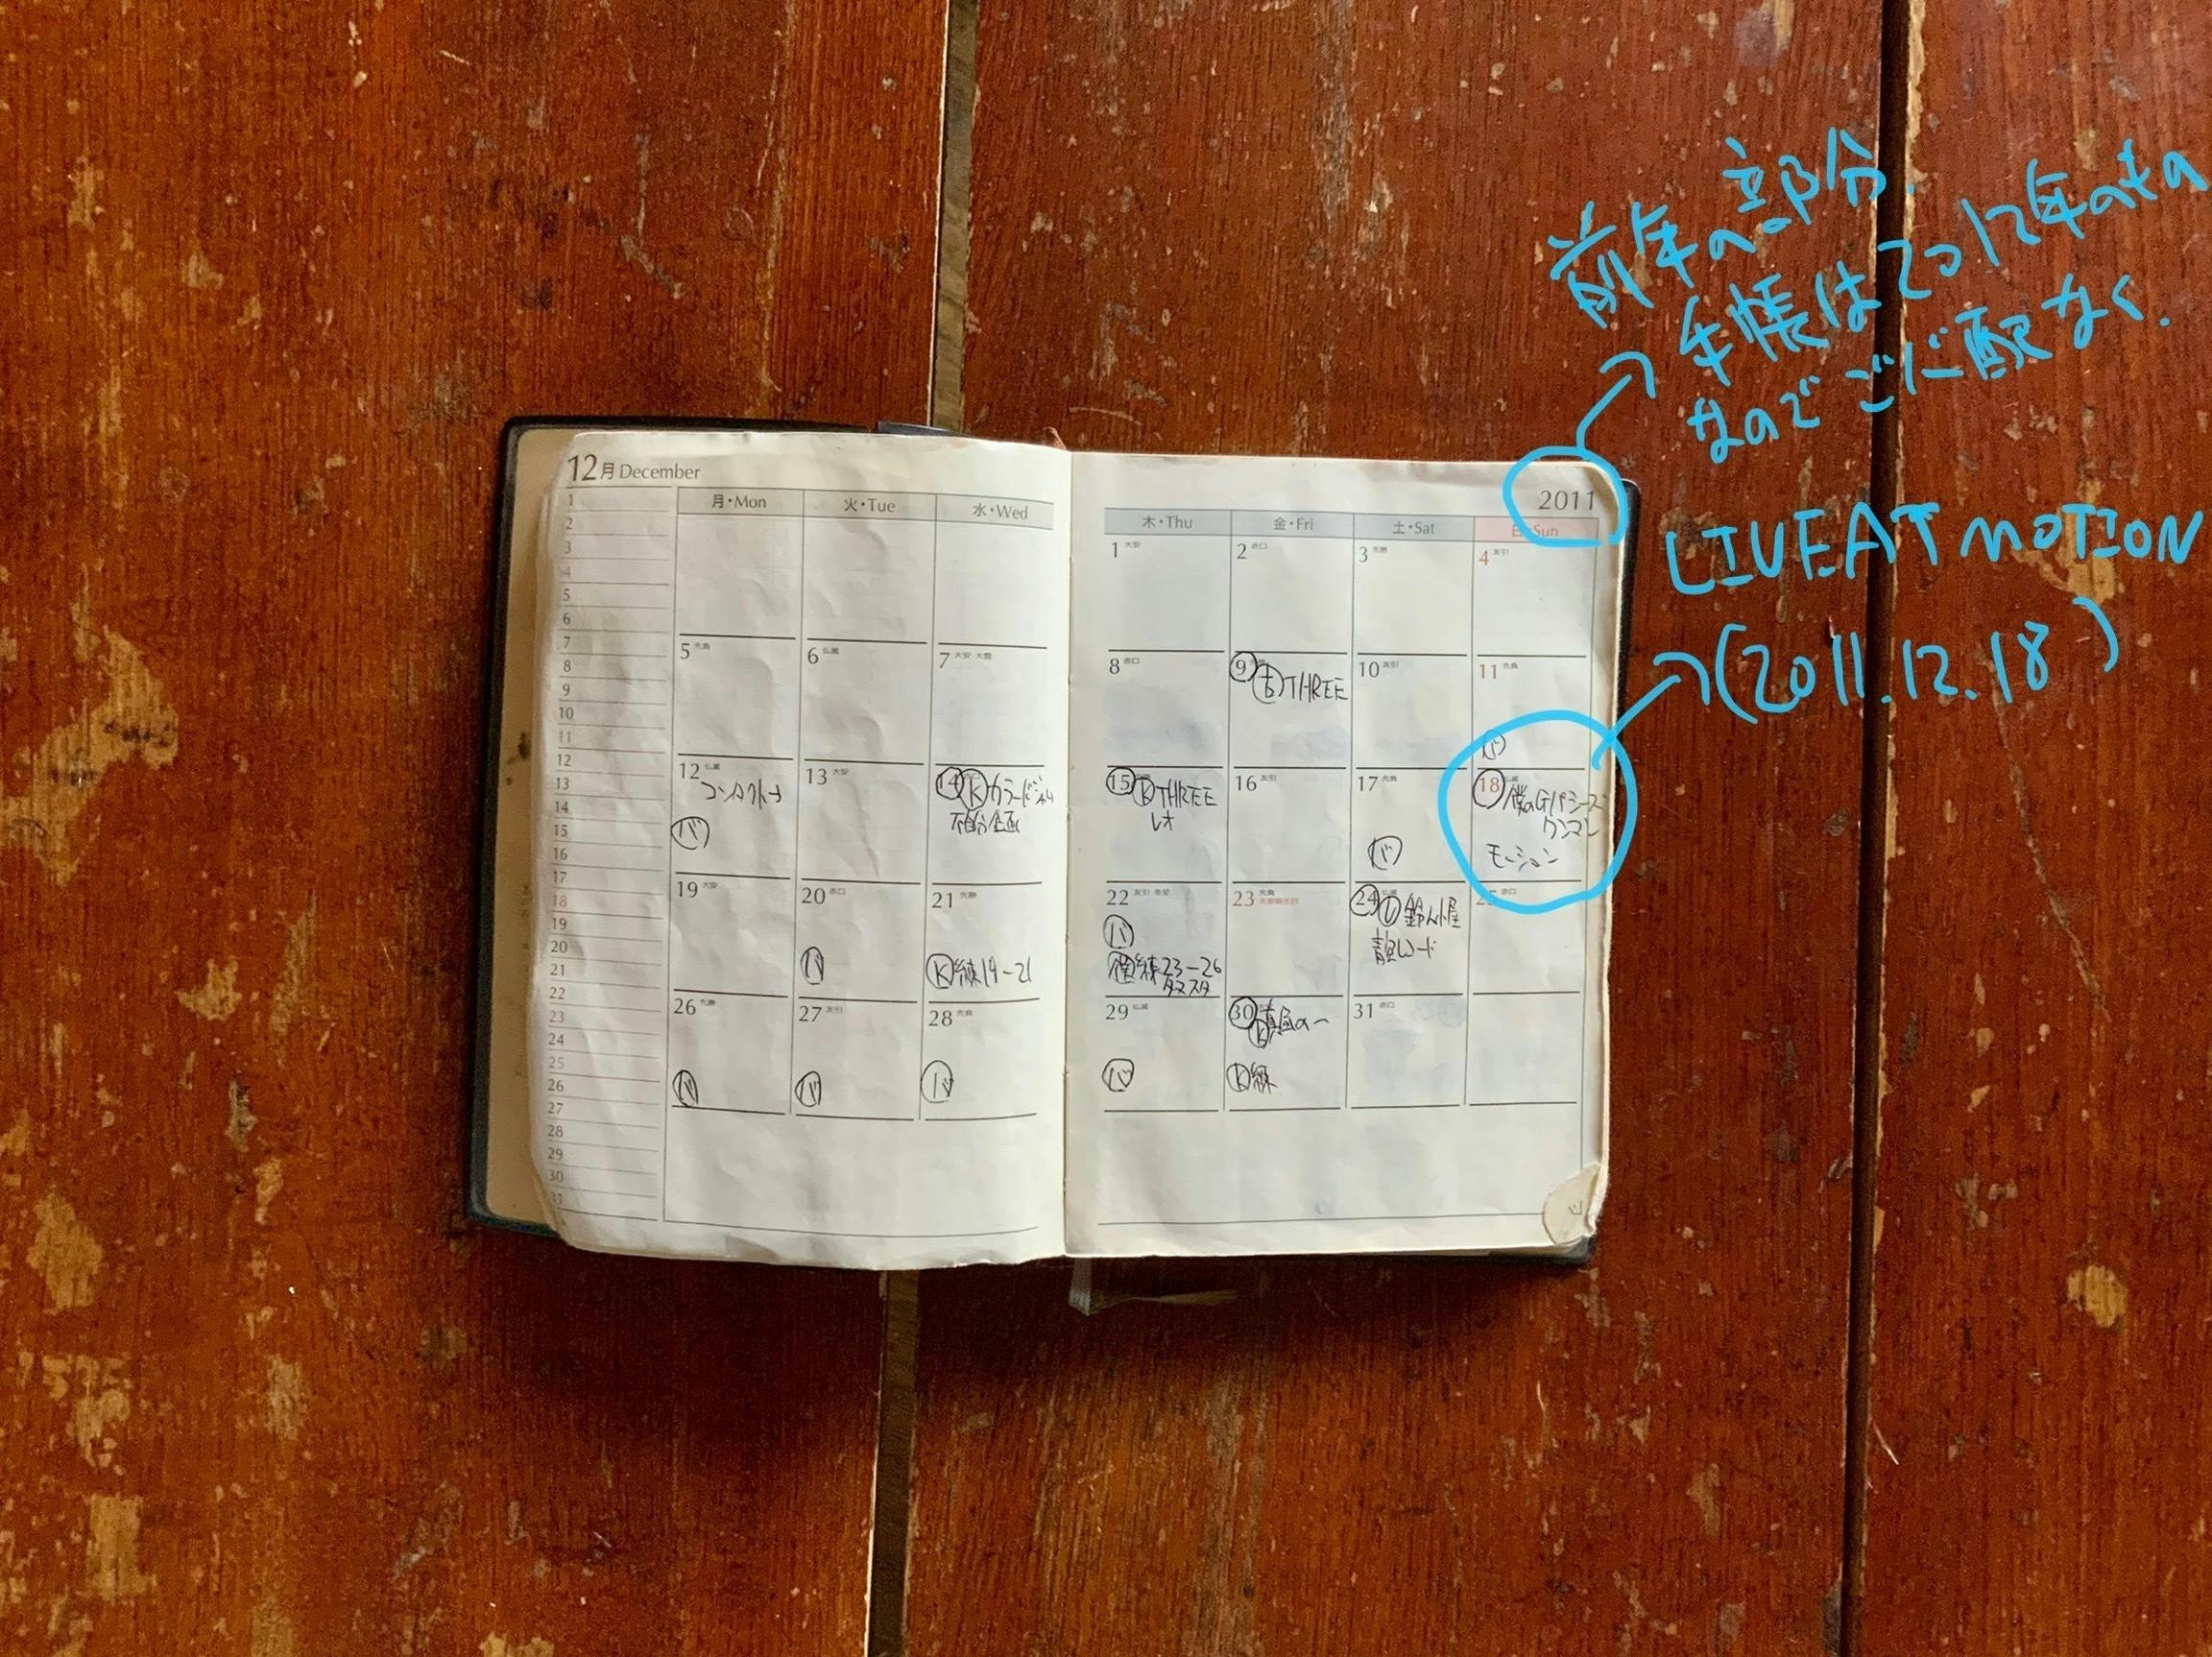 前年の部分.
手帳は2012年のもの
なのでご心配なく.
LIVE AT MOTION
(2011.12.18)
12月 December
2011
月・Mon 火・Tue 水・Wed 木・Thu 金・Fri 土・Sat 日・Sun
1 大安 2 赤口 3 先勝 4 友引
5 先負 6 仏滅 7 大安 大雪 8 赤口 9 10 友引 11 先負
THREE
バ
12 仏滅 13 大安 14 15 16 友引 17 先負 18 仏滅
コンタクト
バ
K カラード
企画
K THREE
レオ
バ
僕のGパンシーズン
ワンマン
モーション
19 大安 20 赤口 21 先勝 22 友引 冬至 23 先負 24 仏滅 25 赤口
天皇誕生日
バ
K 練19-21
バ
僕 練23-26
鈴ん小屋
レコード
26 先勝 27 友引 28 先負 29 仏滅 30 31 赤口
バ
バ
バ
バ
真昼の
K 練
1
2
3
4
5
6
7
8
9
10
11
12
13
14
15
16
17
18
19
20
21
22
23
24
25
26
27
28
29
30
31